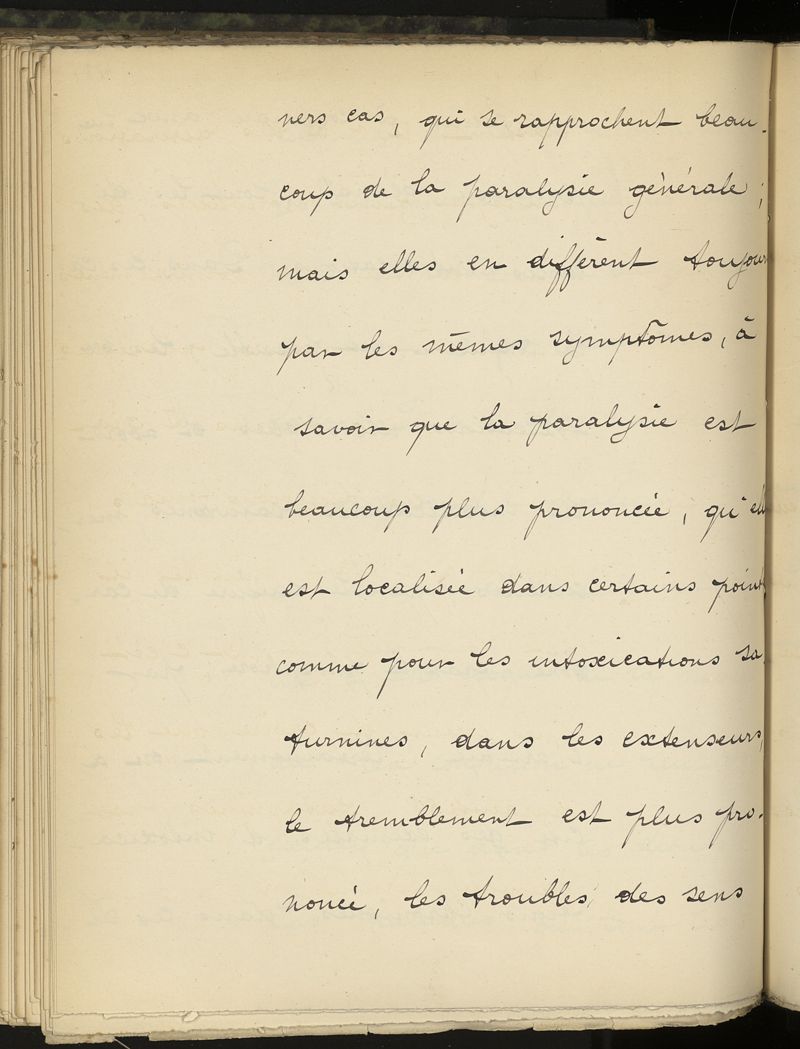 ners cas, qui se rapprochent beau-
coup de la paralysie générale ;
mais elles en diffèrent toujours
par les mêmes symptômes, à
savoir que la paralysie est
beaucoup plus prononcée, qu'elle
est localisée dans certains points
comme pour les intoxications sa-
turnines, dans les extenseurs,
le tremblement est plus pro-
noncé, les troubles des sens